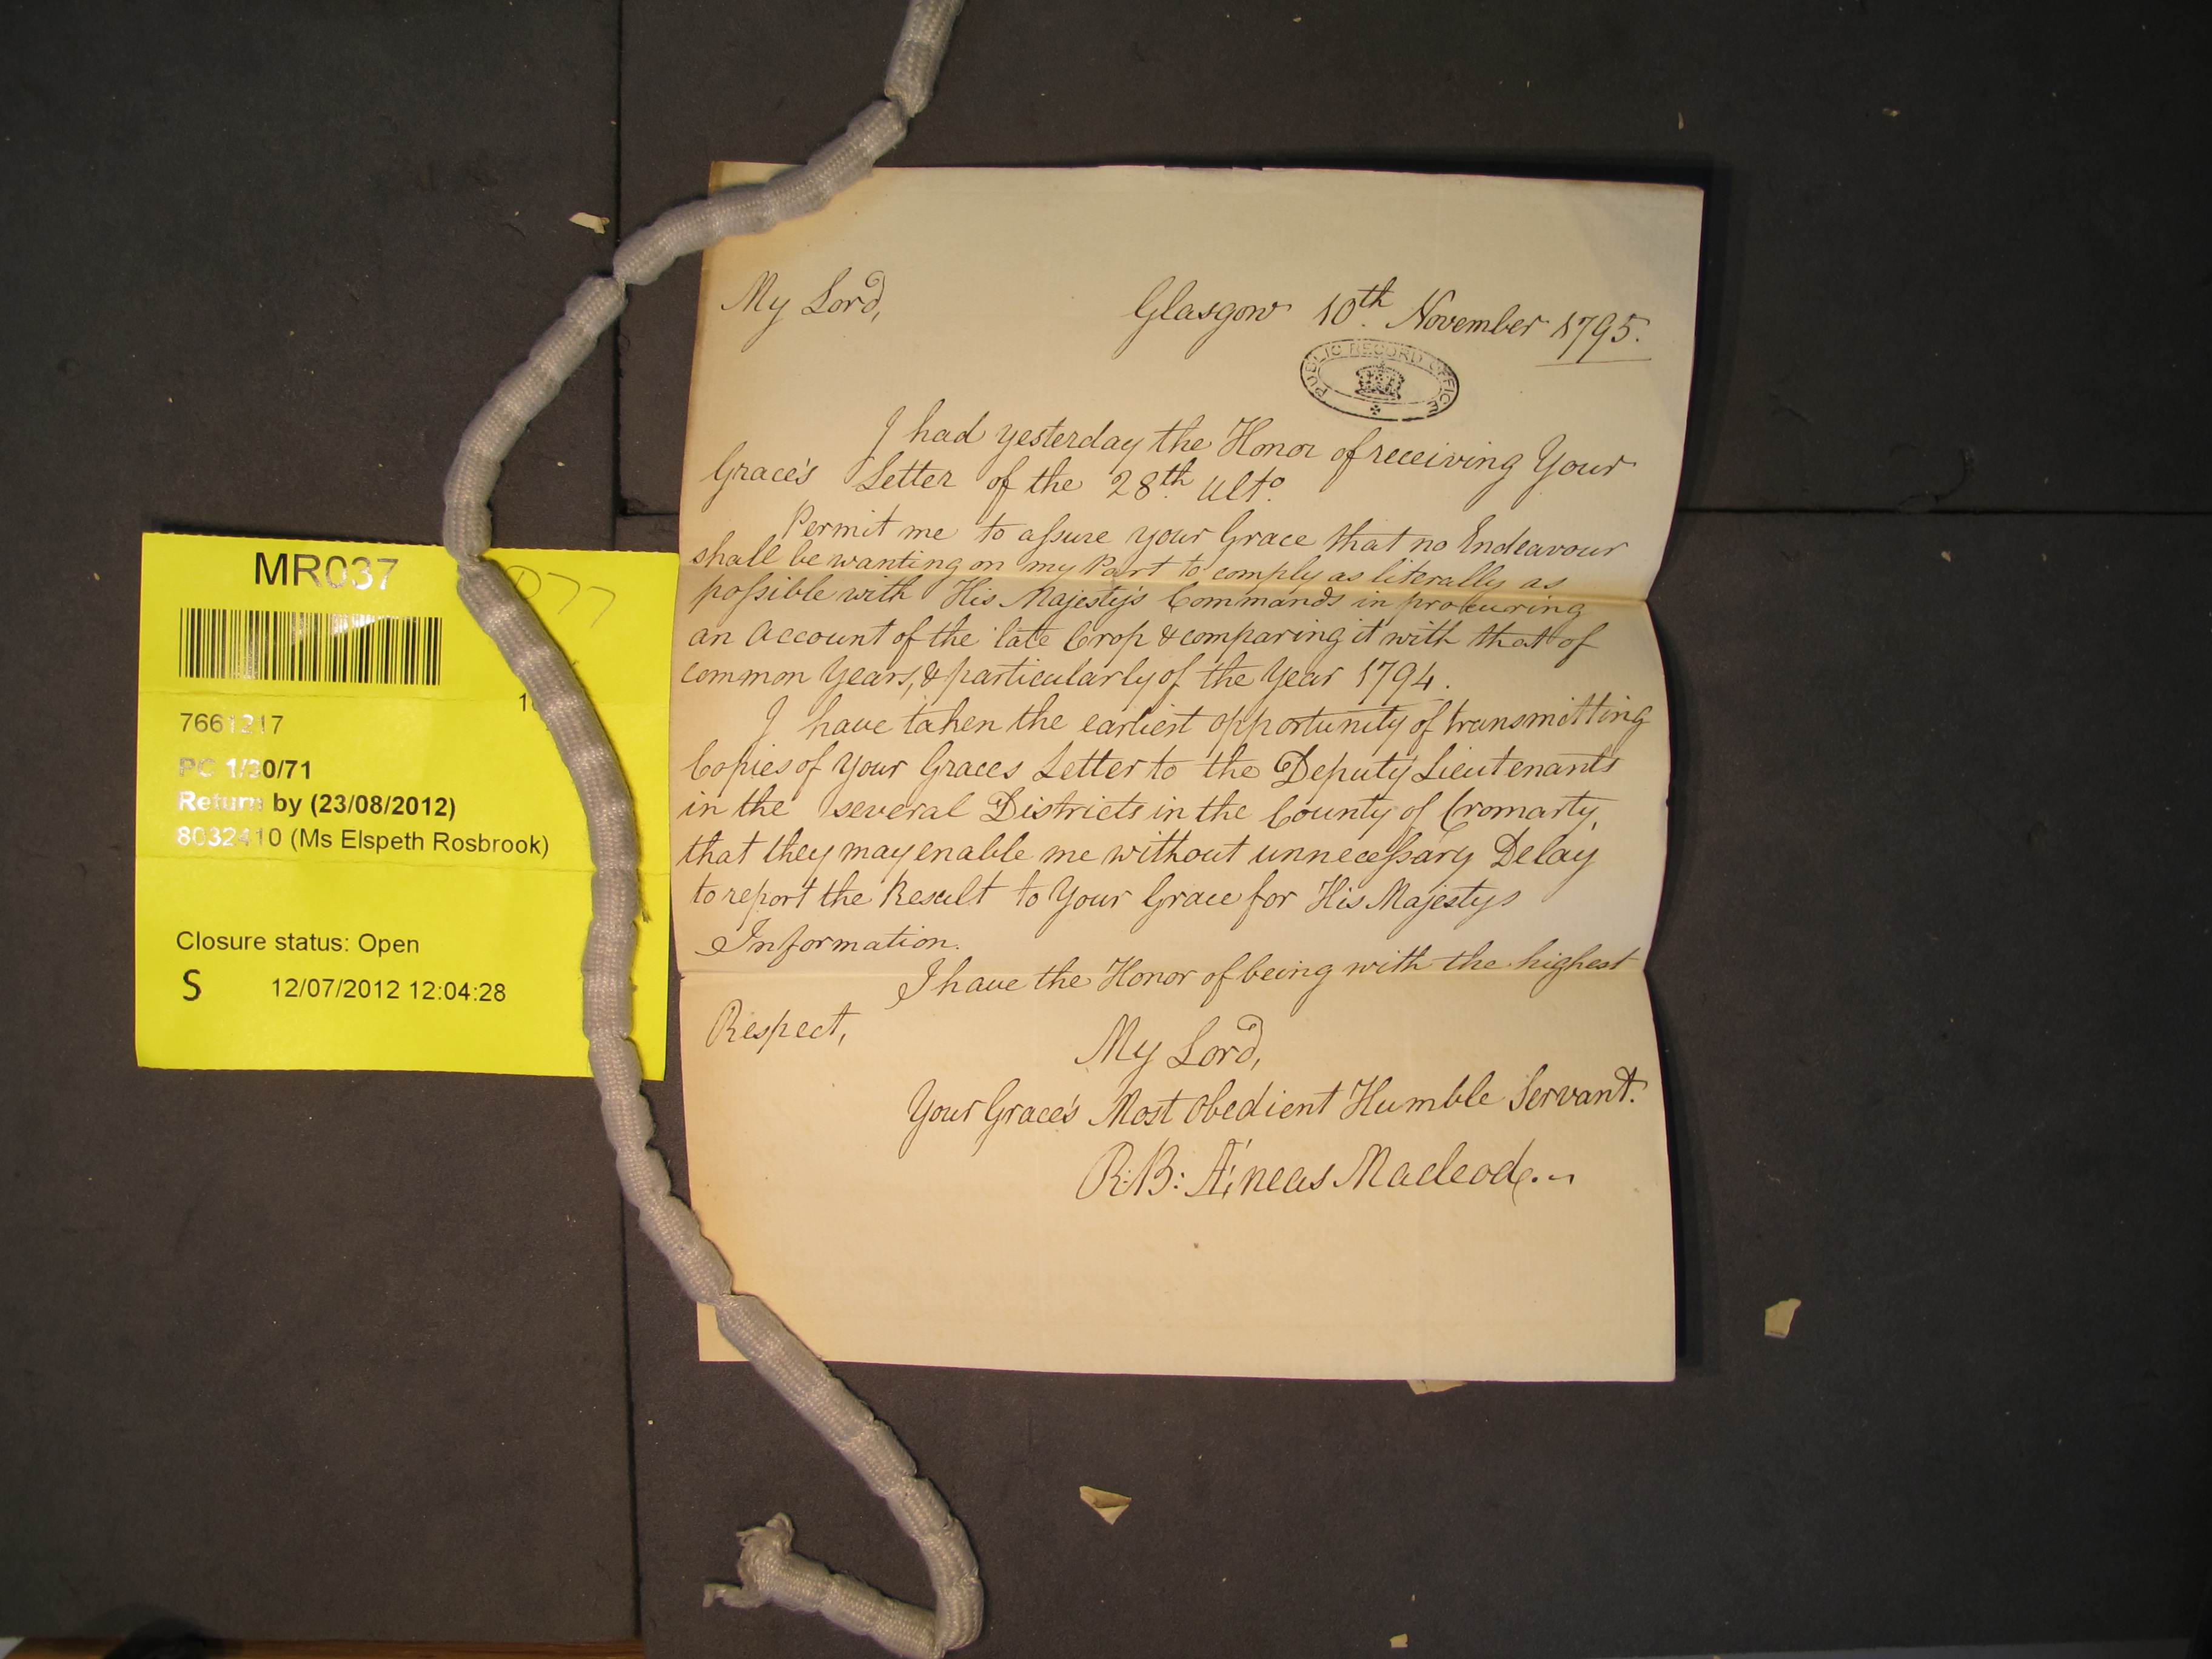 My Lord,
Glasgow 10th. November 1795.
PUBLIC RECORD OFFICE
I had yesterday the Honor of receiving Your
Grace's Letter of the 28th. Ulto.
Permit me to assure your Grace that no Endeavour
shall be wanting on my Part to comply as literally as
possible with His Majesty's Commands in procuring
an Account of the late Crop & comparing it with that of
common Years, & particularly of the Year 1794.
I have taken the earliest opportunity of transmitting
Copies of Your Graces Letter to the Deputy Lieutenants
in the several Districts in the County of Cromarty,
that they may enable me without unnecessary Delay
to report the Result to Your Grace for His Majestys
Information.
I have the Honor of being with the highest
Respect,
My Lord,
Your Grace's Most Obedient Humble Servant.
R: B: Æneas Macleod.
MR037
D77
7661217
PC 1/30/71
Return by (23/08/2012)
8032410 (Ms Elspeth Rosbrook)
Closure status: Open
S 12/07/2012 12:04:28